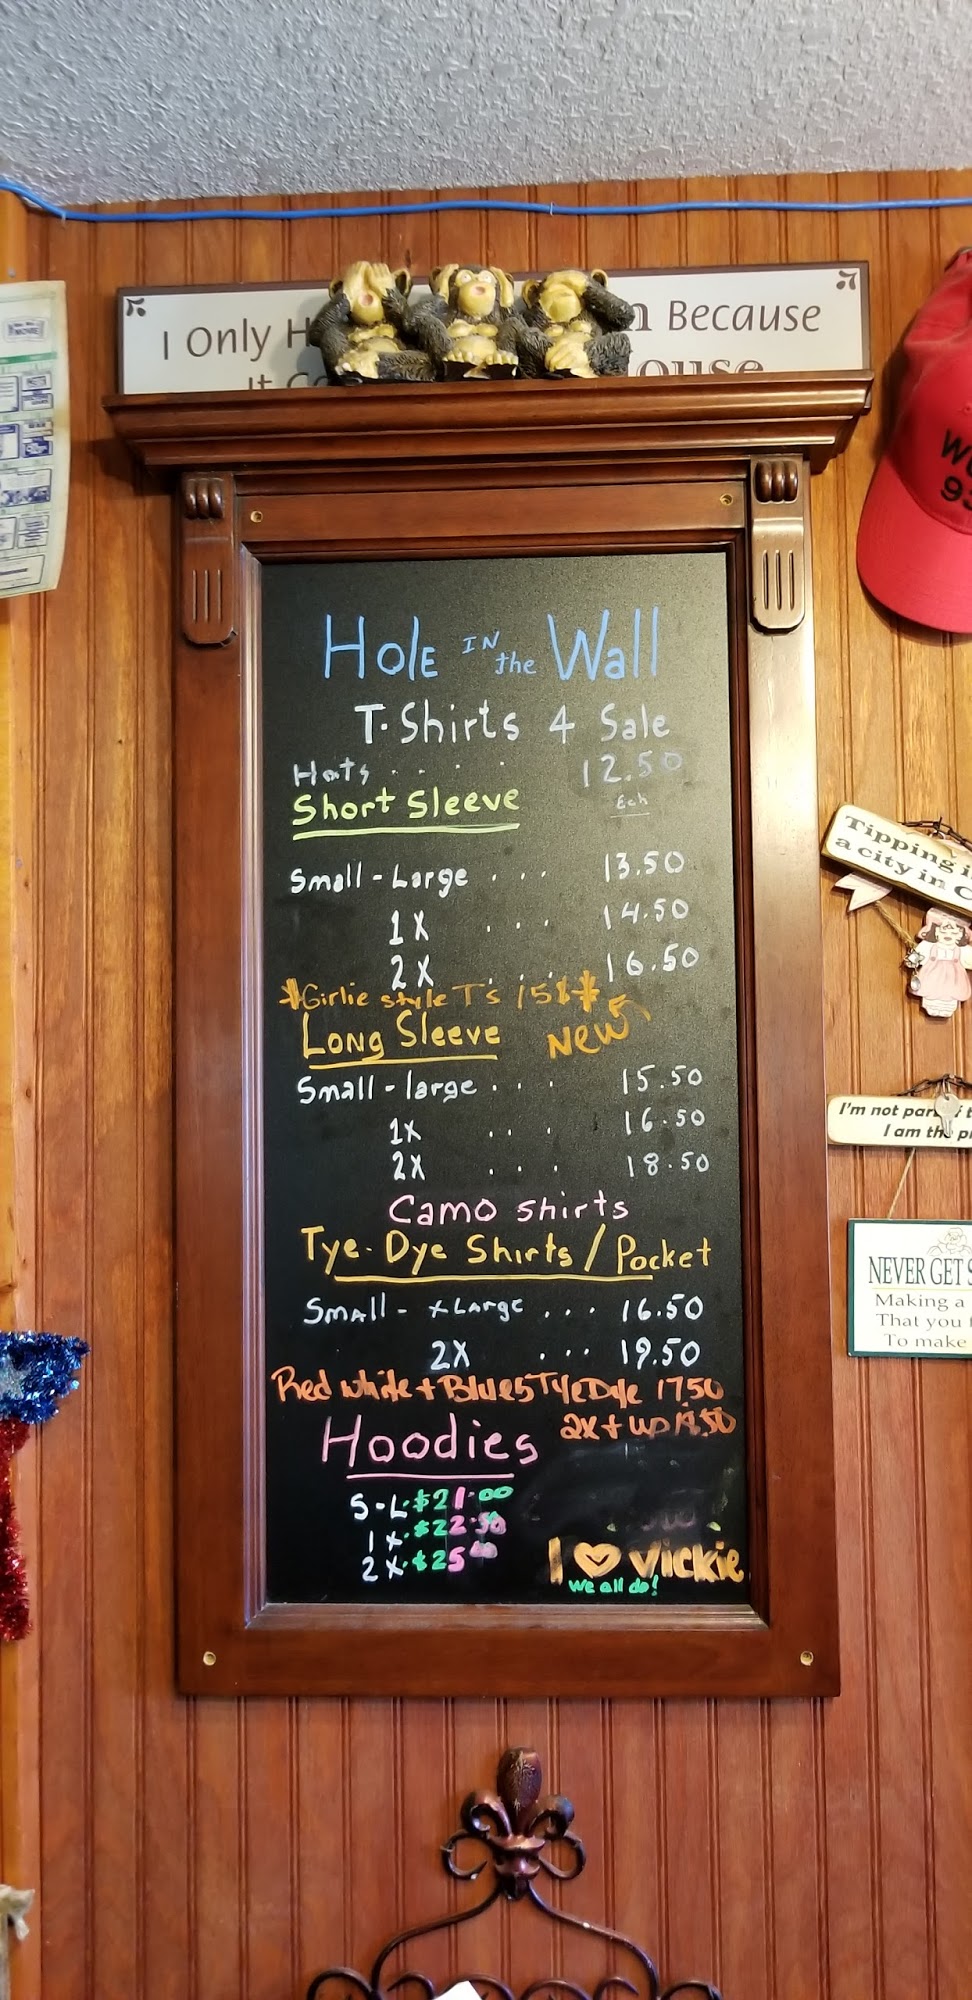 I Only H Because
It
ouse
Hole IN the Wall
T-Shirts 4 Sale
Hats . . . . 12.50
Ech
Short Sleeve
Small - Large . . . 13.50
1X . . . 14.50
2X . . . 16.50
*Girlie style T's 15$*
NEW
Long Sleeve
Small - large . . . 15.50
1X . . . 16.50
2X . . . 18.50
Camo shirts
Tye-Dye Shirts / Pocket
Small - xLarge . . . 16.50
2X . . . 19.50
Red white + Blues Tye Dye 17.50
2X + up
Hoodies
S - L $21.00
1X $22.50
2X $25.00
I ♡ Vickie
we all do!
Tipping i
a city in C
I'm not part
I am the p
NEVER GET S
Making a
That you
To make